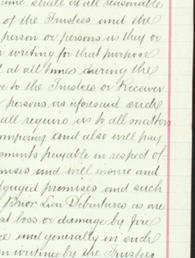 same shall at all reasonable
of the Trustees and the
person or persons as they or
in writing for that purpose
d at all times during the
ce to the Trustees or Receiver
persons as aforesaid such
all require us to all matters
comprising and also will pay
ments payable in respect of
mises and will insure and
dgaged premises and such
Prior Lien Debentures as are
st loss or damage by fire
ce and generally in such
in writing by the Trustees